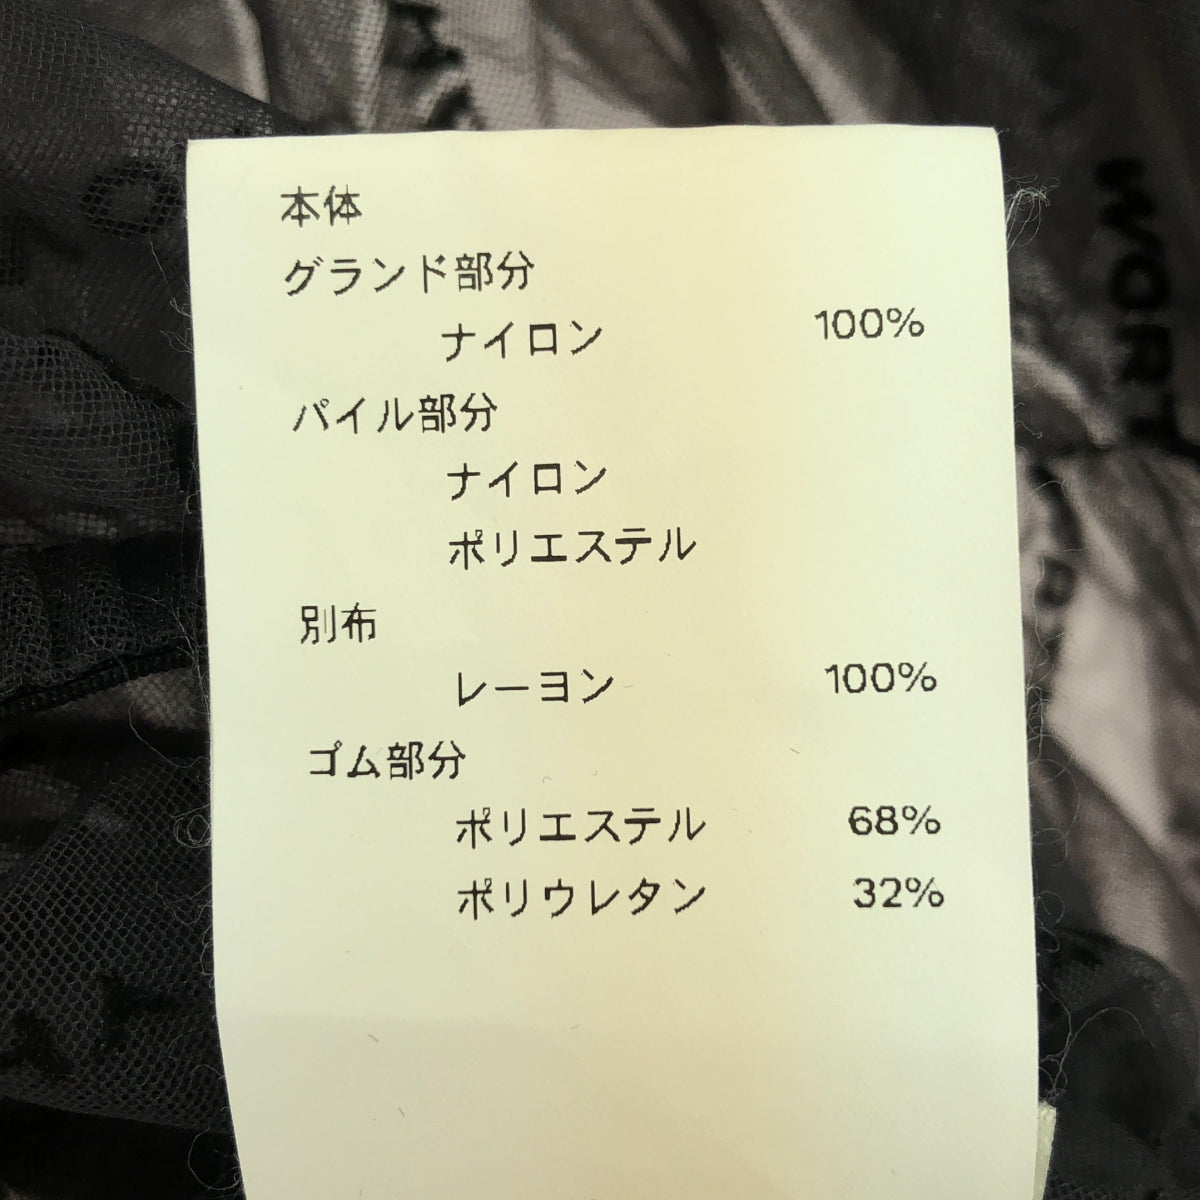 本体
グランド部分
ナイロン 100%
パイル部分
ナイロン
ポリエステル
別布
レーヨン 100%
ゴム部分
ポリエステル 68%
ポリウレタン 32%
WORT